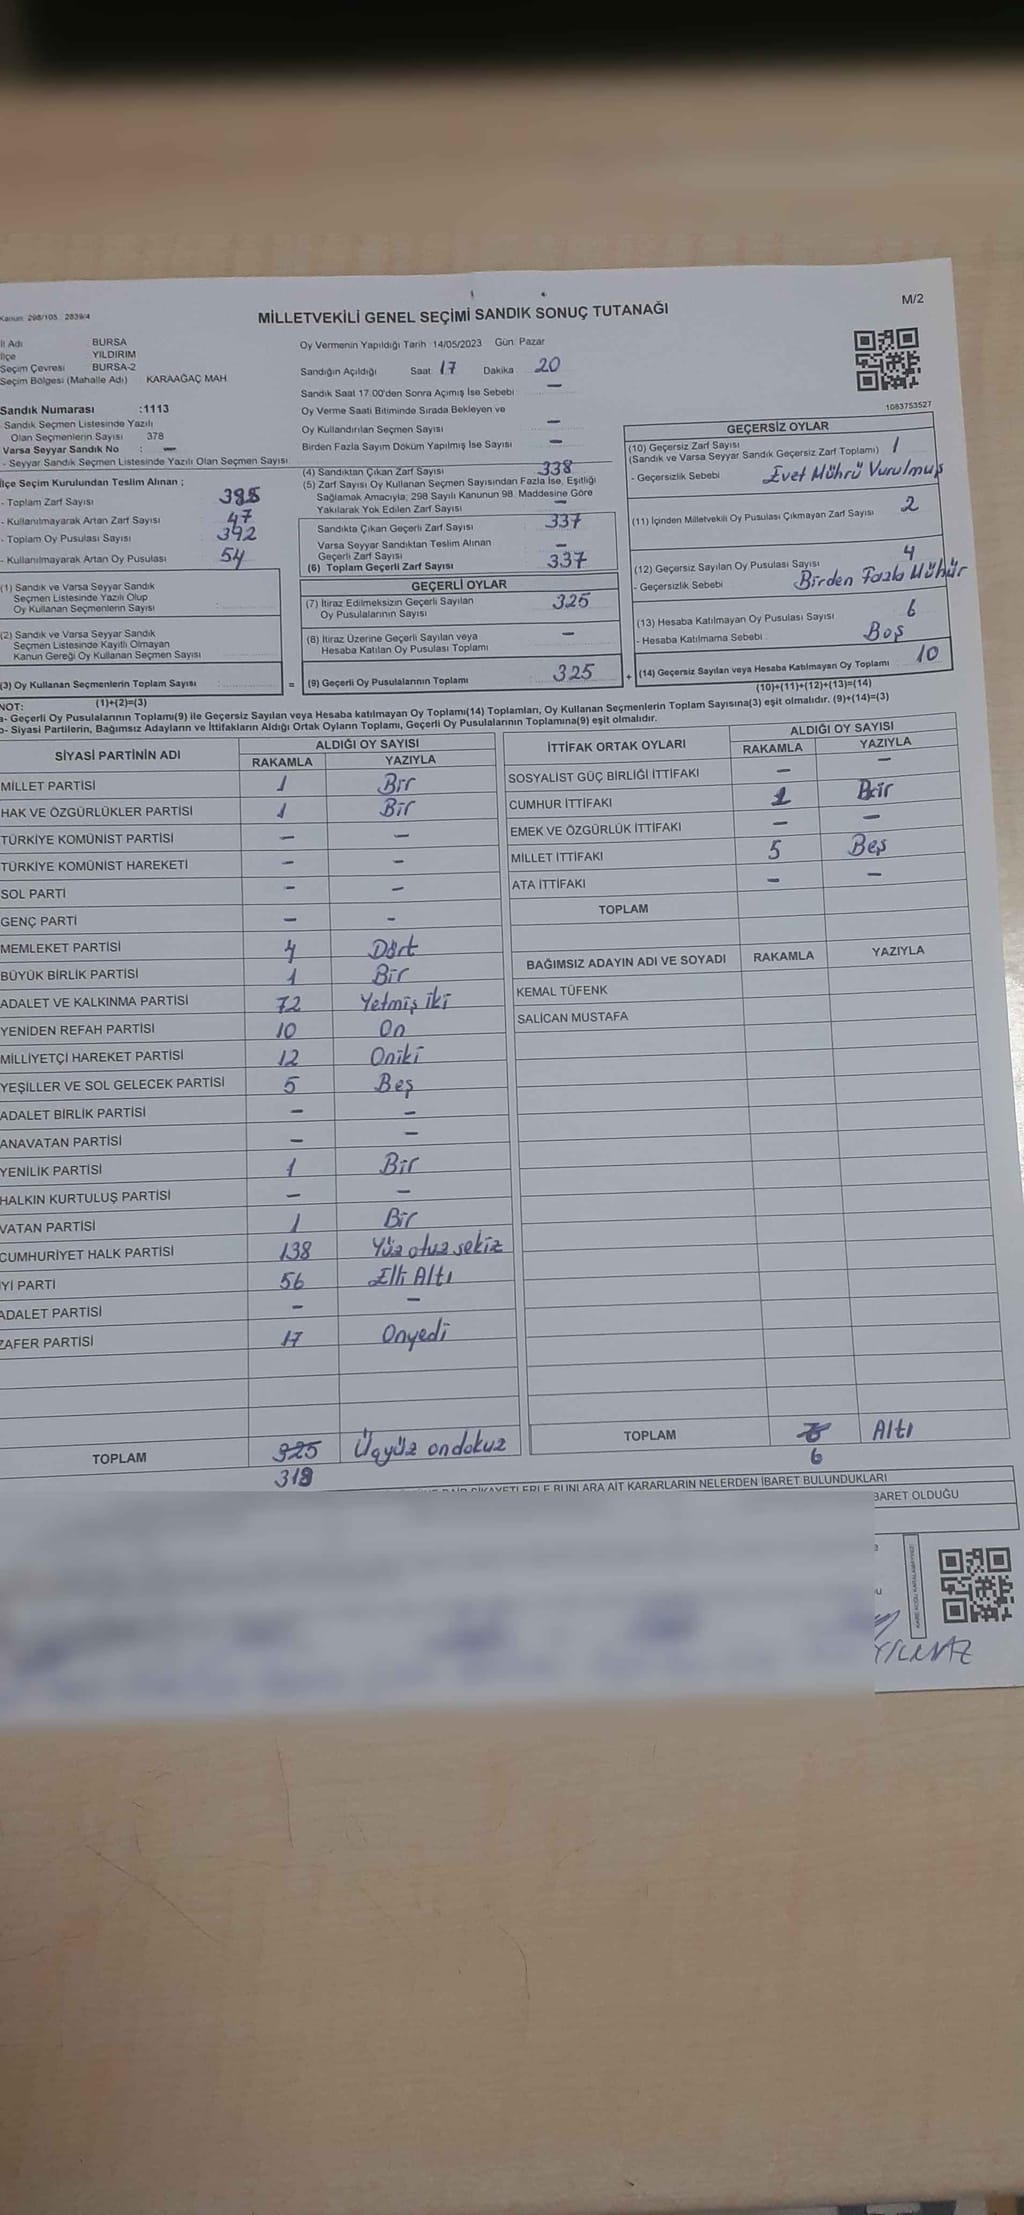 Kanun: 298/105 2839/4
MİLLETVEKİLİ GENEL SEÇİMİ SANDIK SONUÇ TUTANAĞI
M/2
İl Adı BURSA
İlçe YILDIRIM
Seçim Çevresi BURSA-2
Seçim Bölgesi (Mahalle Adı) KARAAĞAÇ MAH
Sandık Numarası :1113
Sandık Seçmen Listesinde Yazılı
Olan Seçmenlerin Sayısı 378
Varsa Seyyar Sandık No : -
- Seyyar Sandık Seçmen Listesinde Yazılı Olan Seçmen Sayısı
İlçe Seçim Kurulundan Teslim Alınan ;
- Toplam Zarf Sayısı
- Kullanılmayarak Artan Zarf Sayısı 47
- Toplam Oy Pusulası Sayısı 392
- Kullanılmayarak Artan Oy Pusulası 54
(1) Sandık ve Varsa Seyyar Sandık
Seçmen Listesinde Yazılı Olup
Oy Kullanan Seçmenlerin Sayısı
(2) Sandık ve Varsa Seyyar Sandık
Seçmen Listesinde Kayıtlı Olmayan
Kanun Gereği Oy Kullanan Seçmen Sayısı
(3) Oy Kullanan Seçmenlerin Toplam Sayısı
(1)+(2)=(3)
Oy Vermenin Yapıldığı Tarih 14/05/2023 Gün: Pazar
Sandığın Açıldığı Saat: 17 Dakika : 20
Sandık Saat 17.00'den Sonra Açımış İse Sebebi : -
Oy Verme Saati Bitiminde Sırada Bekleyen ve
Oy Kullandırılan Seçmen Sayısı -
Birden Fazla Sayım Döküm Yapılmış İse Sayısı -
(4) Sandıktan Çıkan Zarf Sayısı 338
(5) Zarf Sayısı Oy Kullanan Seçmen Sayısından Fazla İse, Eşitliği
Sağlamak Amacıyla, 298 Sayılı Kanunun 98. Maddesine Göre
Yakılarak Yok Edilen Zarf Sayısı -
Sandıkta Çıkan Geçerli Zarf Sayısı 337
Varsa Seyyar Sandıktan Teslim Alınan
Geçerli Zarf Sayısı -
(6) Toplam Geçerli Zarf Sayısı 337
GEÇERLİ OYLAR
(7) İtiraz Edilmeksizin Geçerli Sayılan
Oy Pusulalarının Sayısı 325
(8) İtiraz Üzerine Geçerli Sayılan veya
Hesaba Katılan Oy Pusulası Toplamı -
= (9) Geçerli Oy Pusulalarının Toplamı 325
1083753527
GEÇERSİZ OYLAR
(10) Geçersiz Zarf Sayısı
(Sandık ve Varsa Seyyar Sandık Geçersiz Zarf Toplamı) 1
- Geçersizlik Sebebi Evet Mührü Vurulmuş
(11) İçinden Milletvekili Oy Pusulası Çıkmayan Zarf Sayısı 2
(12) Geçersiz Sayılan Oy Pusulası Sayısı 4
- Geçersizlik Sebebi Birden Fazla Mühür
(13) Hesaba Katılmayan Oy Pusulası Sayısı 6
- Hesaba Katılmama Sebebi : Boş
+ (14) Geçersiz Sayılan veya Hesaba Katılmayan Oy Toplamı 10
(10)+(11)+(12)+(13)=(14)
NOT:
a- Geçerli Oy Pusulalarının Toplamı(9) ile Geçersiz Sayılan veya Hesaba katılmayan Oy Toplamı(14) Toplamları, Oy Kullanan Seçmenlerin Toplam Sayısına(3) eşit olmalıdır. (9)+(14)=(3)
b- Siyasi Partilerin, Bağımsız Adayların ve İttifakların Aldığı Ortak Oyların Toplamı, Geçerli Oy Pusulalarının Toplamına(9) eşit olmalıdır.
SİYASİ PARTİNİN ADI ALDIĞI OY SAYISI
RAKAMLA YAZIYLA
MİLLET PARTİSİ 1 Bir
HAK VE ÖZGÜRLÜKLER PARTİSİ 1 Bir
TÜRKİYE KOMÜNİST PARTİSİ - -
TÜRKİYE KOMÜNİST HAREKETİ - -
SOL PARTİ - -
GENÇ PARTİ - -
MEMLEKET PARTİSİ 4 Dört
BÜYÜK BİRLİK PARTİSİ 1 Bir
ADALET VE KALKINMA PARTİSİ 72 Yetmiş iki
YENİDEN REFAH PARTİSİ 10 On
MİLLİYETÇİ HAREKET PARTİSİ 12 Oniki
YEŞİLLER VE SOL GELECEK PARTİSİ 5 Beş
ADALET BİRLİK PARTİSİ - -
ANAVATAN PARTİSİ - -
YENİLİK PARTİSİ 1 Bir
HALKIN KURTULUŞ PARTİSİ - -
VATAN PARTİSİ 1 Bir
CUMHURİYET HALK PARTİSİ 138 Yüz otuz sekiz
İYİ PARTİ 56 Elli Altı
ADALET PARTİSİ - -
ZAFER PARTİSİ 17 Onyedi
TOPLAM 325 Üçyüz ondokuz
319
İTTİFAK ORTAK OYLARI ALDIĞI OY SAYISI
RAKAMLA YAZIYLA
SOSYALİST GÜÇ BİRLİĞİ İTTİFAKI - -
CUMHUR İTTİFAKI 1 Bir
EMEK VE ÖZGÜRLÜK İTTİFAKI - -
MİLLET İTTİFAKI 5 Beş
ATA İTTİFAKI - -
TOPLAM
BAĞIMSIZ ADAYIN ADI VE SOYADI RAKAMLA YAZIYLA
KEMAL TÜFENK
SALİCAN MUSTAFA
TOPLAM Altı
6
ŞİKAYETLERLE BUNLARA AİT KARARLARIN NELERDEN İBARET BULUNDUKLARI
BARET OLDUĞU
YILMAZ